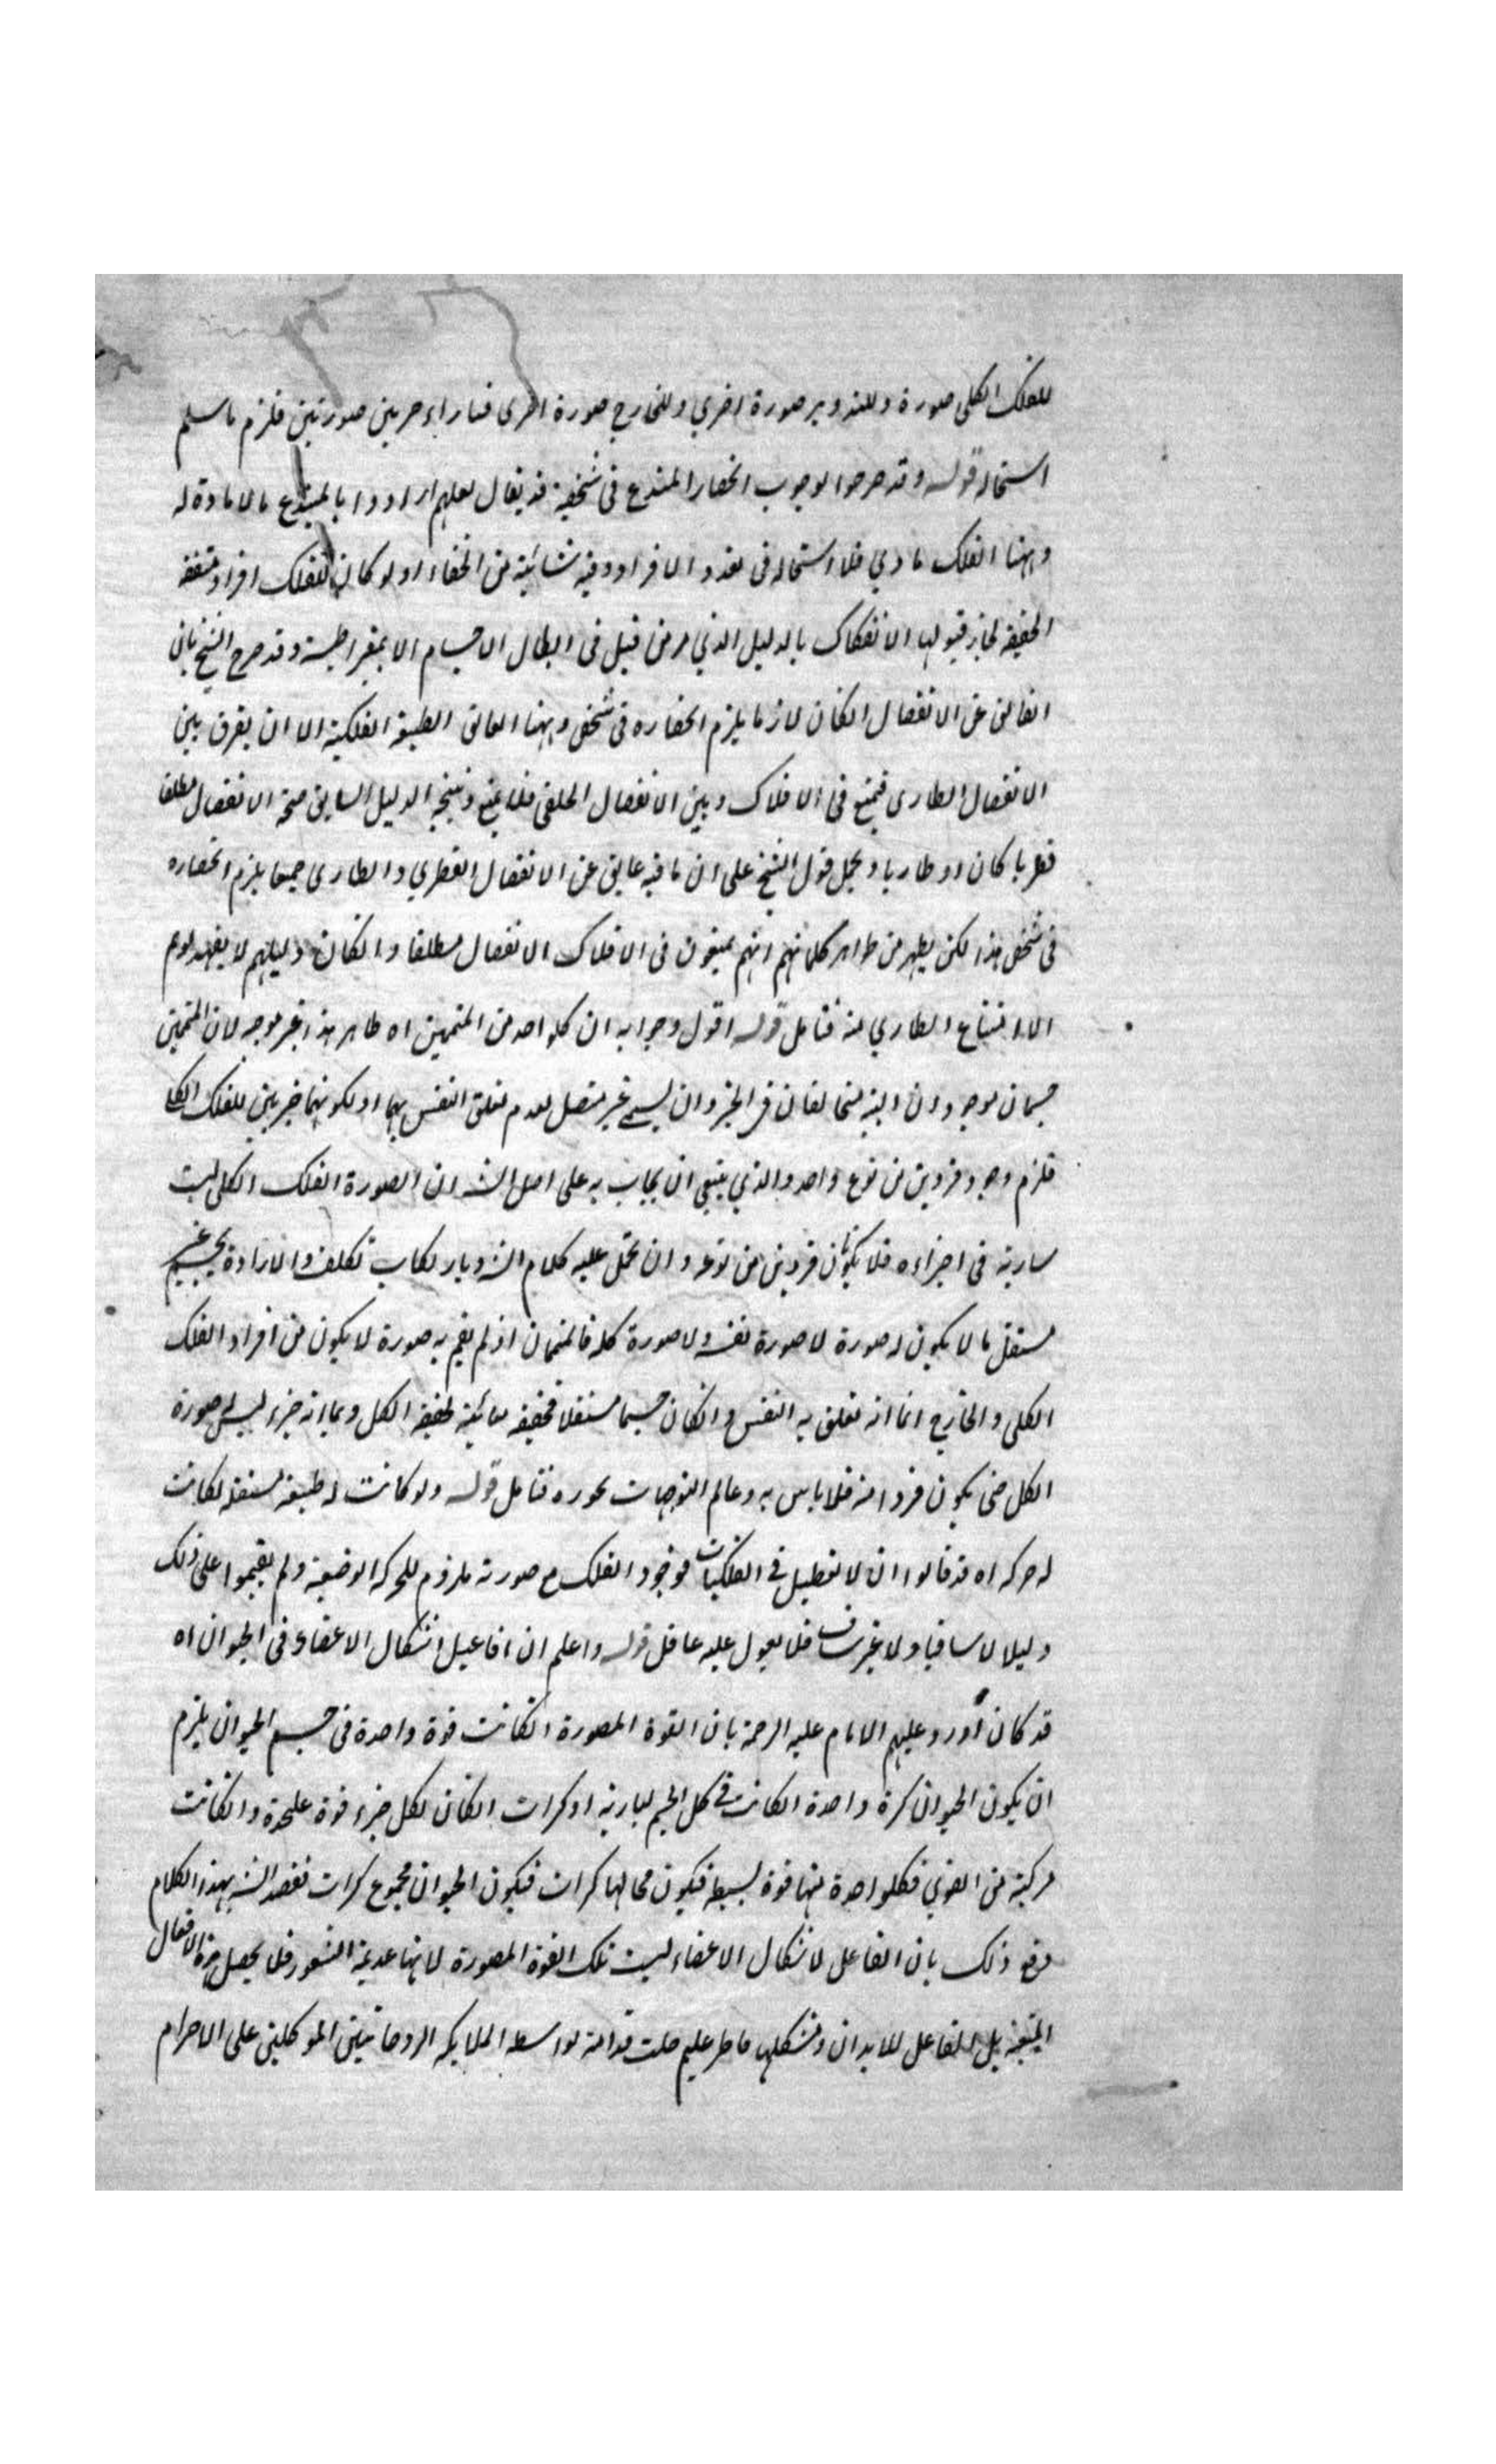 للفلك الكلى صورة وللتدوير صورة اخرى وللخارج صورة اخرى فساراء حربين صورتين فلزم ما سلم
استحاله قوله وقد صرحوا لوجوب انحصار المبتدع فى شخصية قد يقال لعلهم ارادوا بالمبتدع ما لا مادة له
وههنا الفلك مادي فلا استحاله فى تعدد الافراد وفيه شائبة من الخفاء اذ لو كان للفلك افراد متفقة
الحقيقة لجاز قبولها الانفكاك بالدليل الذي مر من قبل فى ابطال الاجسام الديمقراطيسة وقد صرح الشيخ بان
العائق عن الانفصال انكان لازما يلزم انحصاره فى شخص وههنا العائق الطبيعة الفلكية الا ان يفرق بين
الانفصال الطارى فيمتنع فى الافلاك وبين الانفصال الخلقى فلا يمتنع ونتيجة الدليل السابق صحة الانفصال مطلقا
فطريا كان او طاريا ويحمل قول الشيخ على ان ما فيه عايق عن الانفصال الفطري والطارى جميعا يلزم انحصاره
فى شخص هذا لكن يظهر من ظواهر كلماتهم انهم يمنعون فى الافلاك الانفصال مطلقا وانكان دليلهم لا يفيد لهم
الا امتناع الطاري منه فتامل قوله اقول وجوابه ان كلواحد من المتممين اه ظاهر هذا غير موجه لان المتممين
جسمان موجودان البتة متخالفان فى الحيز وان ليس غير متصل لعدم تعلق النفس بهما او لكونهما جزئين للفلك الكلى
فلزم وجود فردين من نوع واحد والذي ينبغي ان يجاب به على اصل الش ان الصورة الفلك الكلى ليست
سارية فى اجزاءه فلا يكونان فردين من نوعه وان يحمل عليه كلام الش وبارتكاب تكلف والارادة بجسم غير
مستقل ما لا يكون له صورة لا صورة نفسه ولا صورة كله فالمتممان اذ لم يقم به صورة لا يكون من افراد الفلك
الكلى والخارج انما انه تعلق به النفس وانكان جسما مستقلا فحقيقته مبائنة لحقيقة الكل وبما انه جزء ليس له صورة
الكل حتى يكون فردا منه فلا باس به وعالم التوجيهات بحوره فتامل قوله ولو كانت له طبيعة مستقلة لكانت
له حركه اه قد قالوا ان لا تعطيل فى الفلكيات فوجود الفلك مع صورته ملزوم للحركه الوضعية ولم يقيموا على ذلك
دليلا لا شافيا ولا غير شاف فلا يعول عليه عاقل قوله واعلم ان افاعيل اشكال الاعضاء فى الحيوان اه
قد كان اورد عليهم الامام عليه الرحمة بان القوة المصورة انكانت قوة واحدة فى جسم الحيوان يلزم
ان يكون الحيوان كرة واحدة انكانت فى كل الجسم لسارية او كرات انكان لكل جزء قوة علحدة وانكانت
مركبة من القوى فكلواحدة منها قوة بسيطة فيكون محالها كرات فيكون الحيوان مجموع كرات فقصد الش بهذا الكلام
دفع ذلك بان الفاعل لاشكال الاعضاء ليست تلك القوة المصورة لانها عديمة الشعور فلا يحصل هذه الافعال
المتقنة بل الفاعل للابدان وتشكلها فاطر عليم جلت قدرته بواسطه الملايكه الروحانيين الموكلين على الاجرام